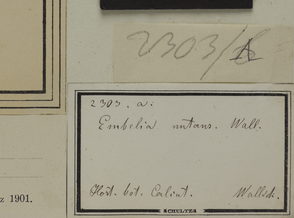 2303/A
2303. a.
Embelia nutans. Wall.
Hort. bot. Calcut. Wallich.
SCHULTZE
z 1901.